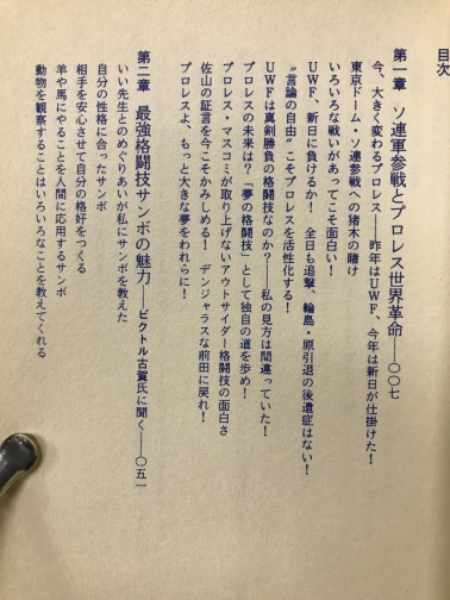 目次
第一章 ソ連軍参戦とプロレス世界革命——〇〇七
今、大きく変わるプロレス——昨年はUWF、今年は新日が仕掛けた！
東京ドーム・ソ連参戦への猪木の賭け
いろいろな戦いがあってこそ面白い！
UWF、新日に負けるか！ 全日も追撃、輪島・原引退の後遺症はない！
〝言論の自由〟こそプロレスを活性化する！
UWFは真剣勝負の格闘技なのか？——私の見方は間違っていた！
プロレスの未来は？「夢の格闘技」として独自の道を歩め！
プロレス・マスコミが取り上げないアウトサイダー格闘技の面白さ
佐山の証言を今こそかみしめる！ デンジャラスな前田に戻れ！
プロレスよ、もっと大きな夢をわれらに！
第二章 最強格闘技サンボの魅力——ビクトル古賀氏に聞く——〇五一
いい先生とのめぐりあいが私にサンボを教えた
自分の性格に合ったサンボ
相手を安心させて自分の格好をつくる
羊や馬にやることを人間に応用するサンボ
動物を観察することはいろいろなことを教えてくれる